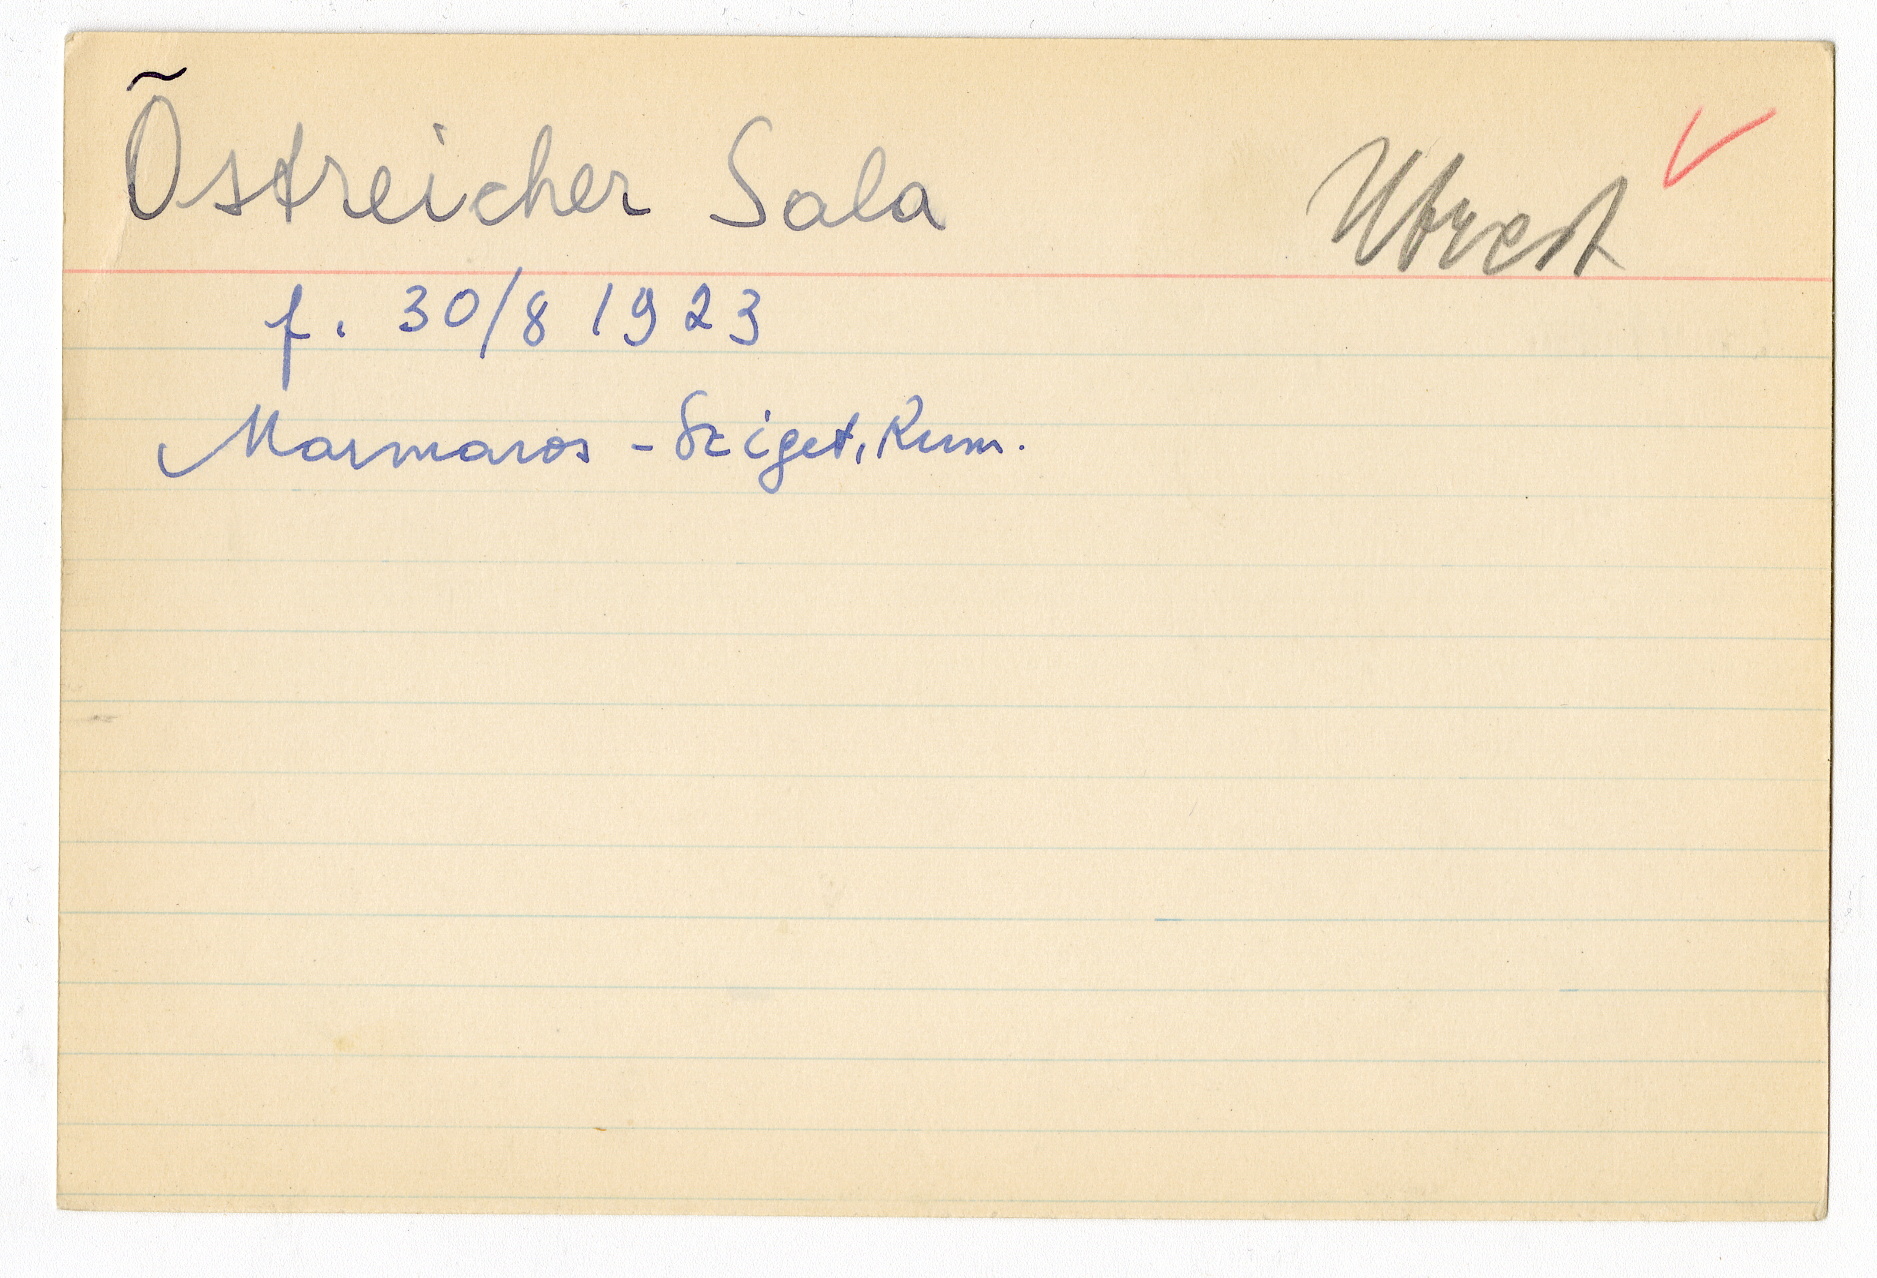 Östreicher Sala
Utrest
f. 30/8 1923
Marmaros - Sziget, Rum.